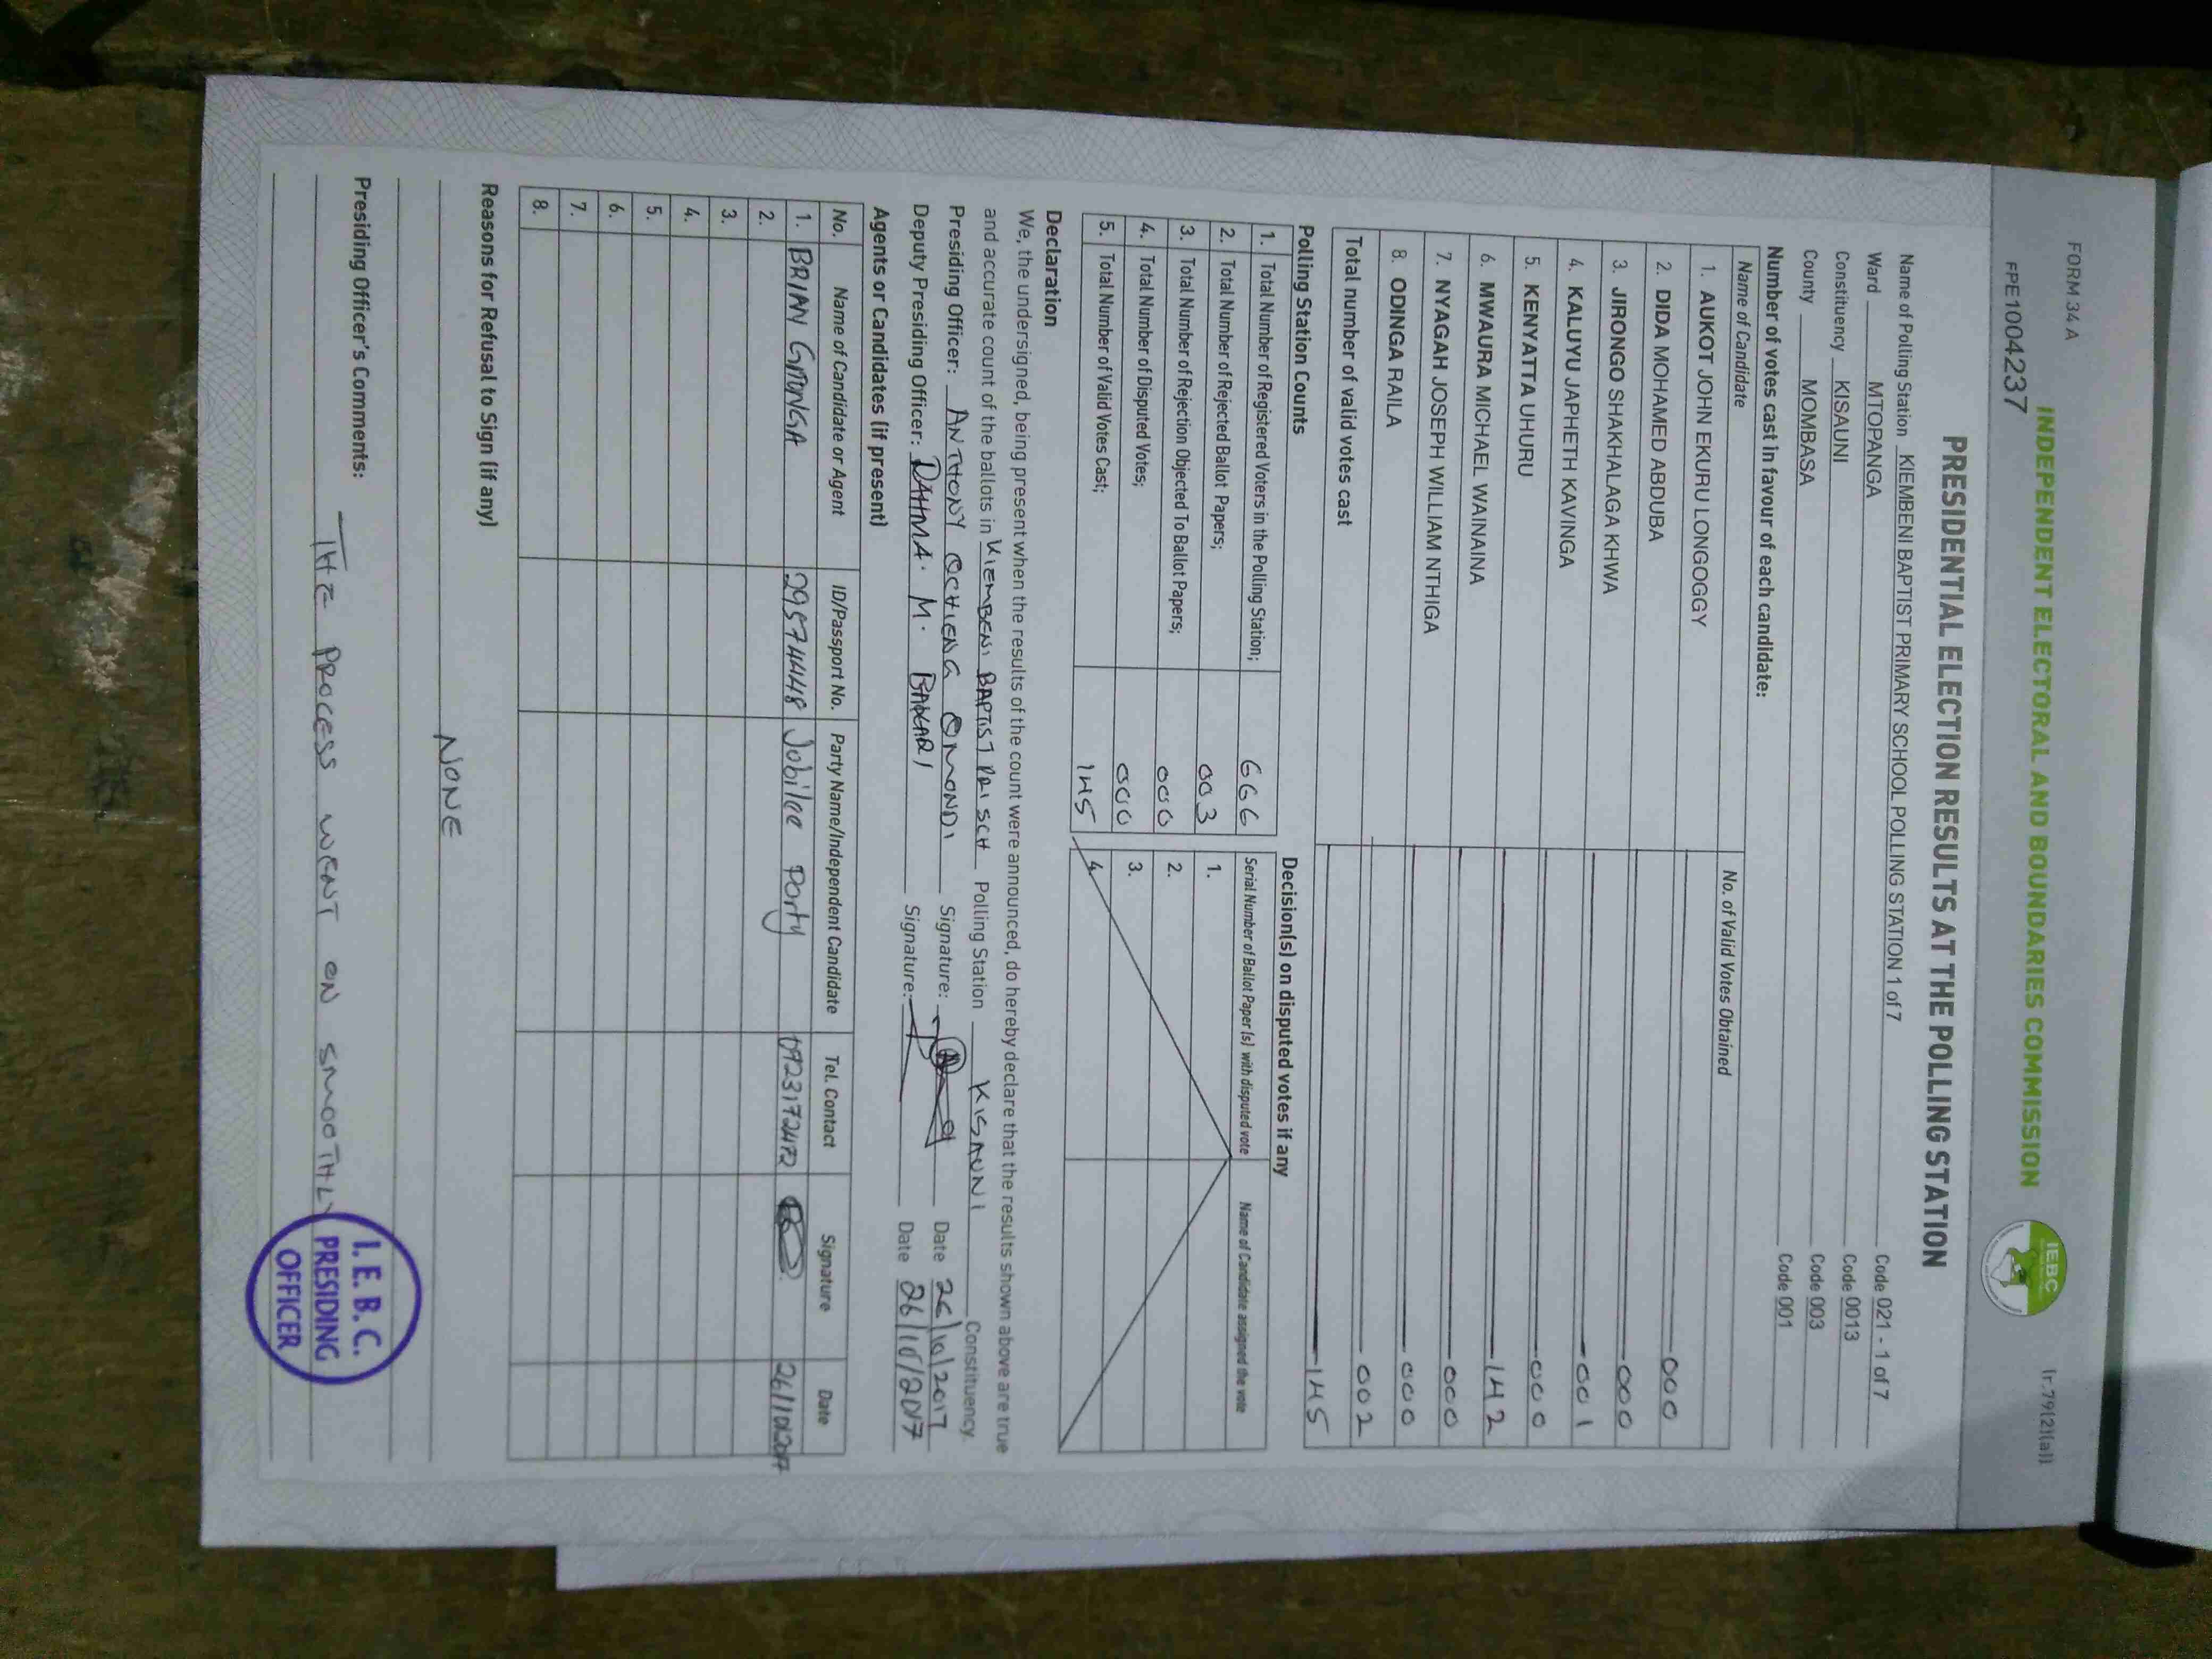 FORM 34 A
(r.79(2)(a))
INDEPENDENT ELECTORAL AND BOUNDARIES COMMISSION
IEBC
FPE1004237
PRESIDENTIAL ELECTION RESULTS AT THE POLLING STATION
Name of Polling Station KIEMBENI BAPTIST PRIMARY SCHOOL POLLING STATION 1 of 7 Code 021 - 1 of 7
Ward MTOPANGA Code 0013
Constituency KISAUNI Code 003
County MOMBASA Code 001
Number of votes cast in favour of each candidate:
Name of Candidate No. of Valid Votes Obtained
1. AUKOT JOHN EKURU LONGOGGY 000
2. DIDA MOHAMED ABDUBA 000
3. JIRONGO SHAKHALAGA KHWA 001
4. KALUYU JAPHETH KAVINGA 000
5. KENYATTA UHURU 142
6. MWAURA MICHAEL WAINAINA 000
7. NYAGAH JOSEPH WILLIAM NTHIGA 000
8. ODINGA RAILA 002
Total number of valid votes cast 145
Polling Station Counts
1. Total Number of Registered Voters in the Polling Station; 666
2. Total Number of Rejected Ballot Papers; 003
3. Total Number of Rejection Objected To Ballot Papers; 000
4. Total Number of Disputed Votes; 000
5. Total Number of Valid Votes Cast; 145
Decision(s) on disputed votes if any
Serial Number of Ballot Paper (s) with disputed vote Name of Candidate assigned the vote
1.
2.
3.
4.
Declaration
We, the undersigned, being present when the results of the count were announced, do hereby declare that the results shown above are true
and accurate count of the ballots in KIEMBENI BAPTIST PRI SCH Polling Station KISAUNI Constituency.
Presiding Officer: ANTHONY OCHIENG OMONDI Signature: Date 26/10/2017
Deputy Presiding Officer: DAHMA. M. BAKARI Signature: Date 26/10/2017
Agents or Candidates (if present)
No. Name of Candidate or Agent ID/Passport No. Party Name/Independent Candidate Tel. Contact Signature Date
1. BRIAN 29574448 Jubilee Party 26/10/2017
2.
3.
4.
5.
6.
7.
8.
Reasons for Refusal to Sign (if any)
NONE
Presiding Officer's Comments:
THE PROCESS WENT ON SMOOTHLY
I.E.B.C.
PRESIDING
OFFICER